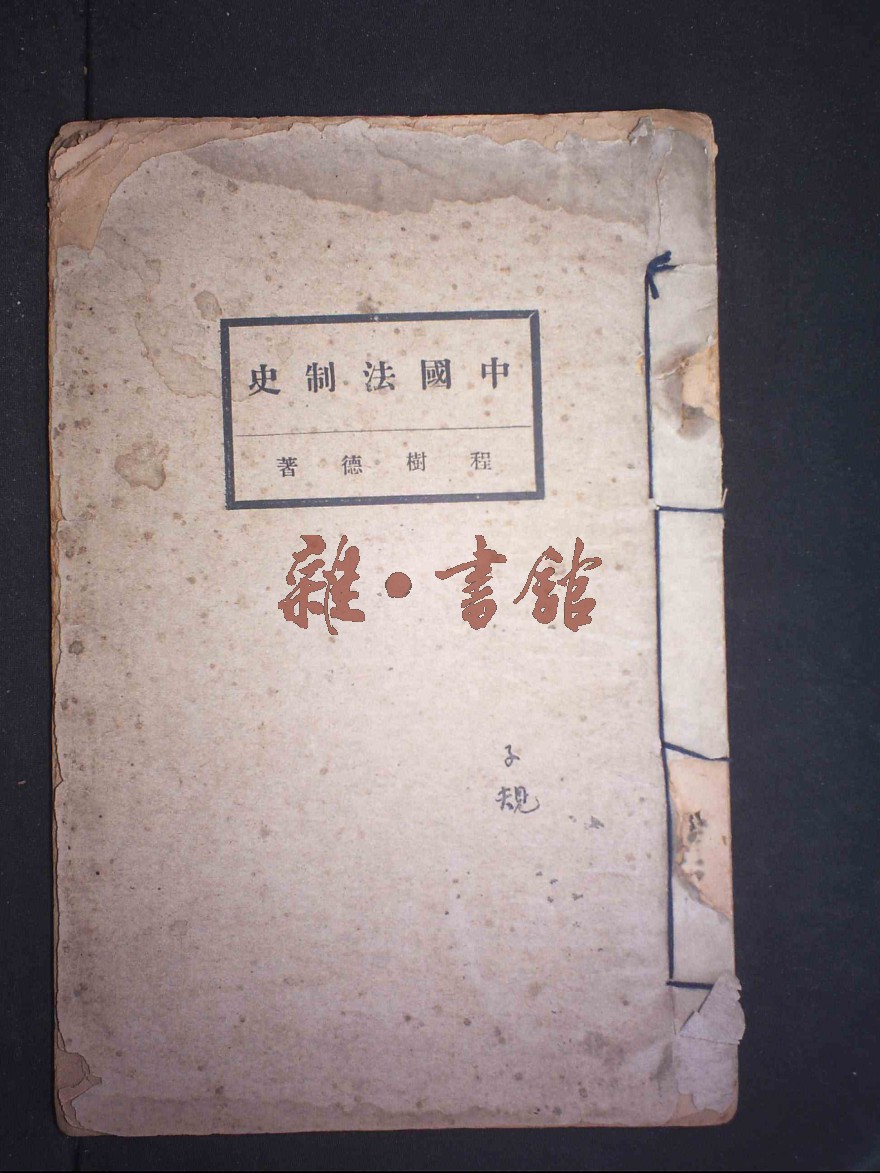 中國法制史
程樹德著
雜·書館
子
規